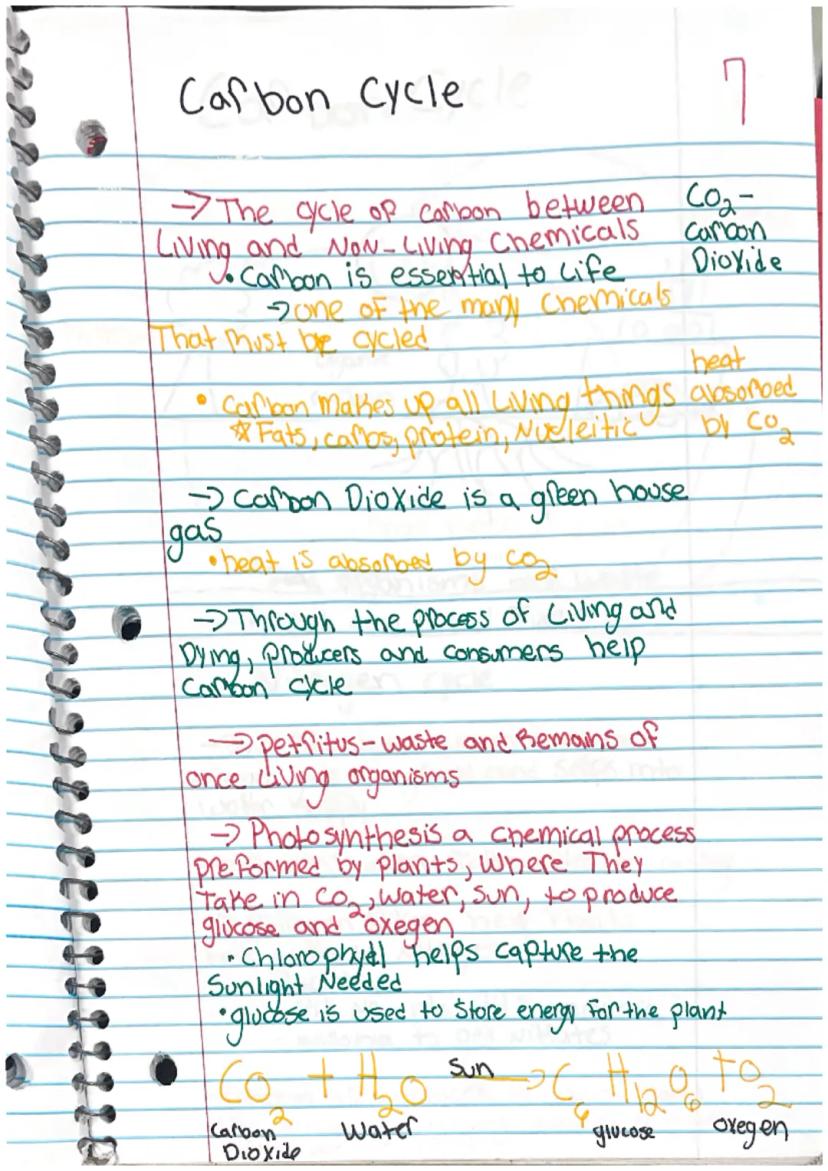 Carbon Cycle
7
→ The cycle of carbon between
Living and Non-Living Chemicals
CO2 -
carbon
Dioxide
• Carbon is essential to Life
→ one of the many Chemicals
That must be cycled
• carbon makes up all Living things
* Fats, carbs, protein, Nucleitic
heat
absorbed
by CO2
→ Carbon Dioxide is a green house
gas
• heat is absorbed by CO2
→ Through the process of Living and
Dying, producers and consumers help
Carbon cycle
→ Detritus - waste and Remains of
once Living organisms
→ Photosynthesis a chemical process
preformed by plants, Where They
Take in CO2, water, sun, to produce
glucose and oxegen
• Chlorophyll helps capture the
Sunlight Needed
• glucose is used to Store energy for the plant
CO2 + H2O Sun → C6 H12 O6 + O2
Carbon Dioxide
Water
glucose
oxegen